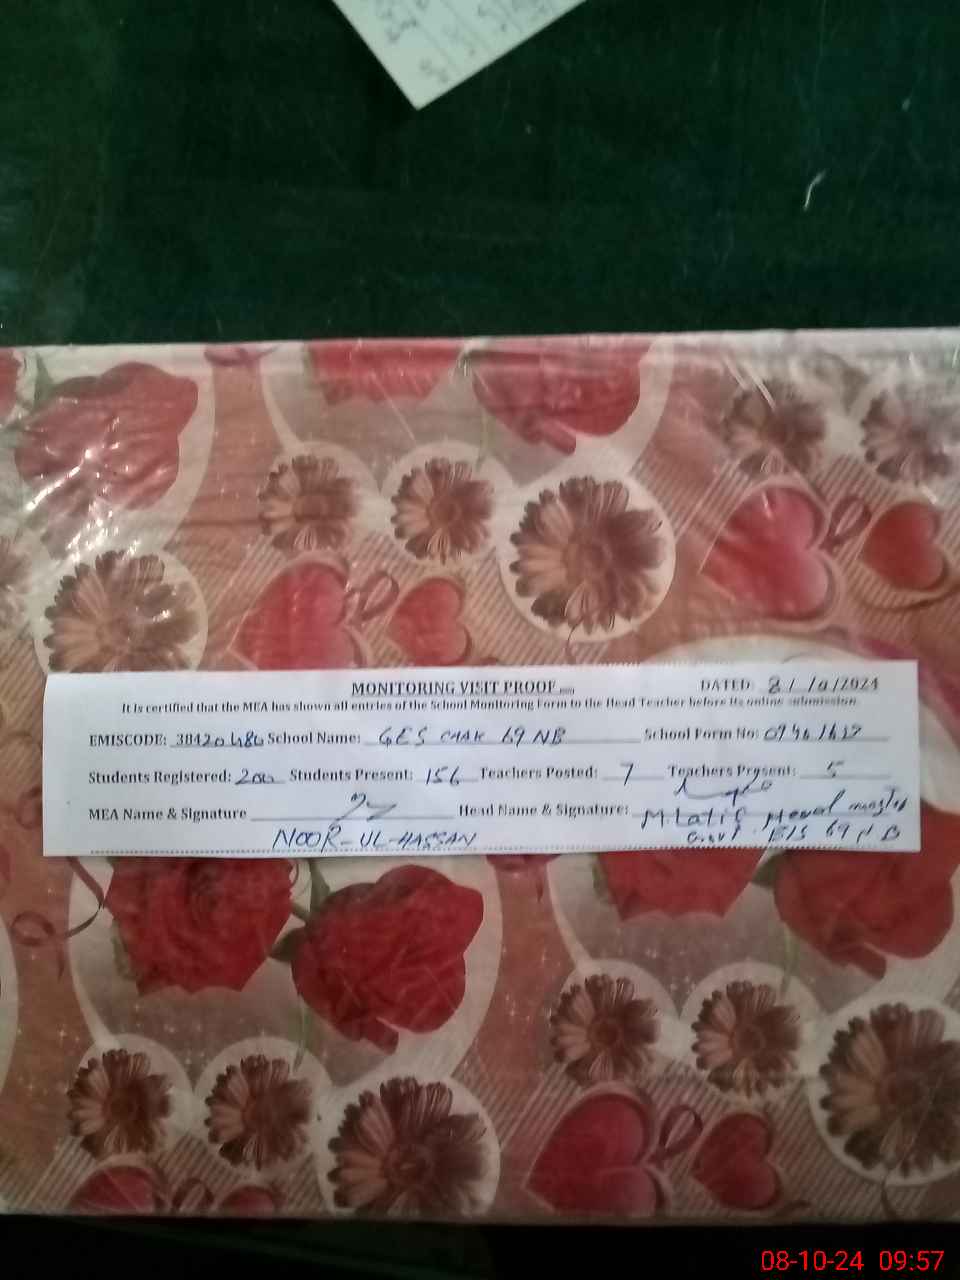 MONITORING VISIT PROOF
DATED: 8/10/2024
It is certified that the MEA has shown all entries of the School Monitoring Form to the Head Teacher before its online submission.
EMISCODE: 38420486 School Name: GES CHAK 69 NB School Form No:
Students Registered: 200 Students Present: 156 Teachers Posted: 7 Teachers Present: 5
MEA Name & Signature Head Name & Signature: M. Latif Head
NOOR-UL-HASSAN Govt. E/S 69 N B
08-10-24 09:57